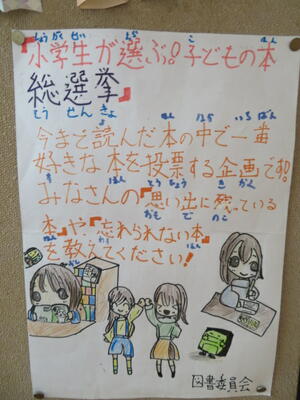 『小学生が選ぶ!子どもの本
総選挙』
今まで読んだ本の中で一番
好きな本を投票する企画です!
みなさんの『思い出に残っている
本』や『忘れられない本』
を教えてください!
図書委員会